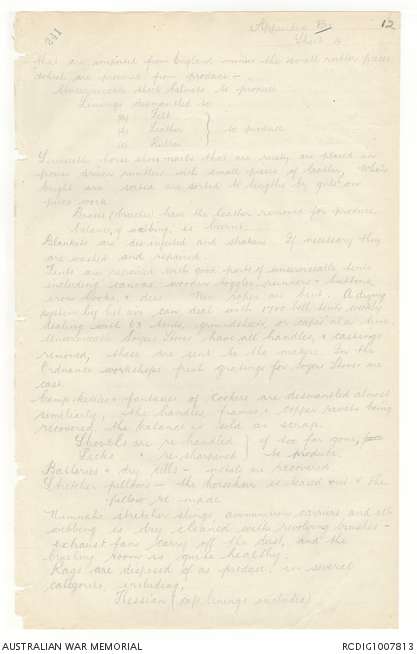 241
Appendix B/1
Sheet 3
12
that are imported from England minus the small rubber pieces
which are removed from produce -
Unserviceable steel helmets to produce
Linings dismantled to
(a) Felt
(b) Leather } to produce
(c) Rubber
horse shoe nails that are rusty are placed in
power driven rumblers with small pieces of leather. When
bright and sorted are sorted to lengths by girls on
piece work.
Braces/breeches have the leather removed for produce
balance, if webbing, is burnt.
Blankets are disinfected and shaken. If necessary they
are washed and repaired.
Tents are repaired with good parts of unserviceable tents
including canvas, wooden toggles, runners & buttons,
iron hooks, & dees. New ropes are bent. A drying
system by hot air can deal with 1700 bell tents weekly
dealing with 63 tents, groundsheets or capes at a time.
Unserviceable Soyers Stoves have all handles, & castings
removed, these are sent to the makers. In the
Ordnance workshops fresh gratings for Soyer Stoves are
cast.
Camp kettles & fantasses of Cookers are dismantled almost
similarly. The handles, frames & copper rivets being
recovered, the balance is sold as scrap.
Shovels are re-handled } if too far gone,
Picks " re-sharpened } to produce.
Batteries & dry cells - metals are recovered.
Stretcher pillows - the horsehair is teased out & the
pillow re-made
stretcher slings, ammunition carriers and all
webbing is dry cleaned with revolving brushes -
exhaust fans carry off the dust, and the
brushing room is quite healthy.
Rags are disposed of as produce in several
categories, including,
Hessian (cap linings included)
AUSTRALIAN WAR MEMORIAL
RCDIG1007813